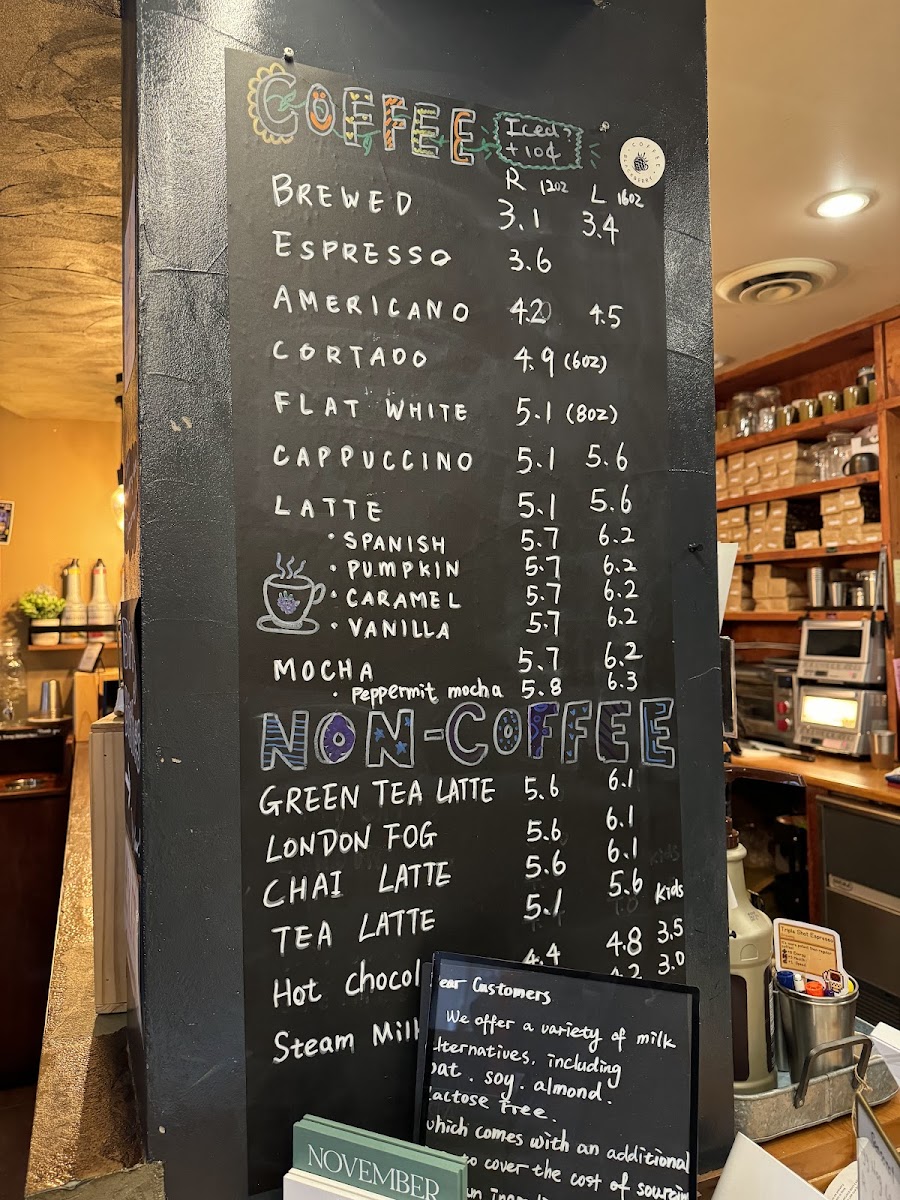 COFFEE Iced + 10¢
R 12oz L 16oz
BREWED 3.1 3.4
ESPRESSO 3.6
AMERICANO 4.20 4.5
CORTADO 4.9 (6oz)
FLAT WHITE 5.1 (8oz)
CAPPUCCINO 5.1 5.6
LATTE 5.1 5.6
• SPANISH 5.7 6.2
• PUMPKIN 5.7 6.2
• CARAMEL 5.7 6.2
• VANILLA 5.7 6.2
MOCHA 5.7 6.2
• Peppermit mocha 5.8 6.3
NON-COFFEE
GREEN TEA LATTE 5.6 6.1
LONDON FOG 5.6 6.1
CHAI LATTE 5.6 6.1
TEA LATTE 5.1 5.6 kids
Hot chocol 4.4 4.8 3.5
Steam Milk 4.2 3.0
ear Customers
We offer a variety of milk
lternatives, including
oat. soy. almond.
actose Free.
which comes with an additional
to cover the cost of sourcin
NOVEMBER
Triple Shot Espresso
COFFEE